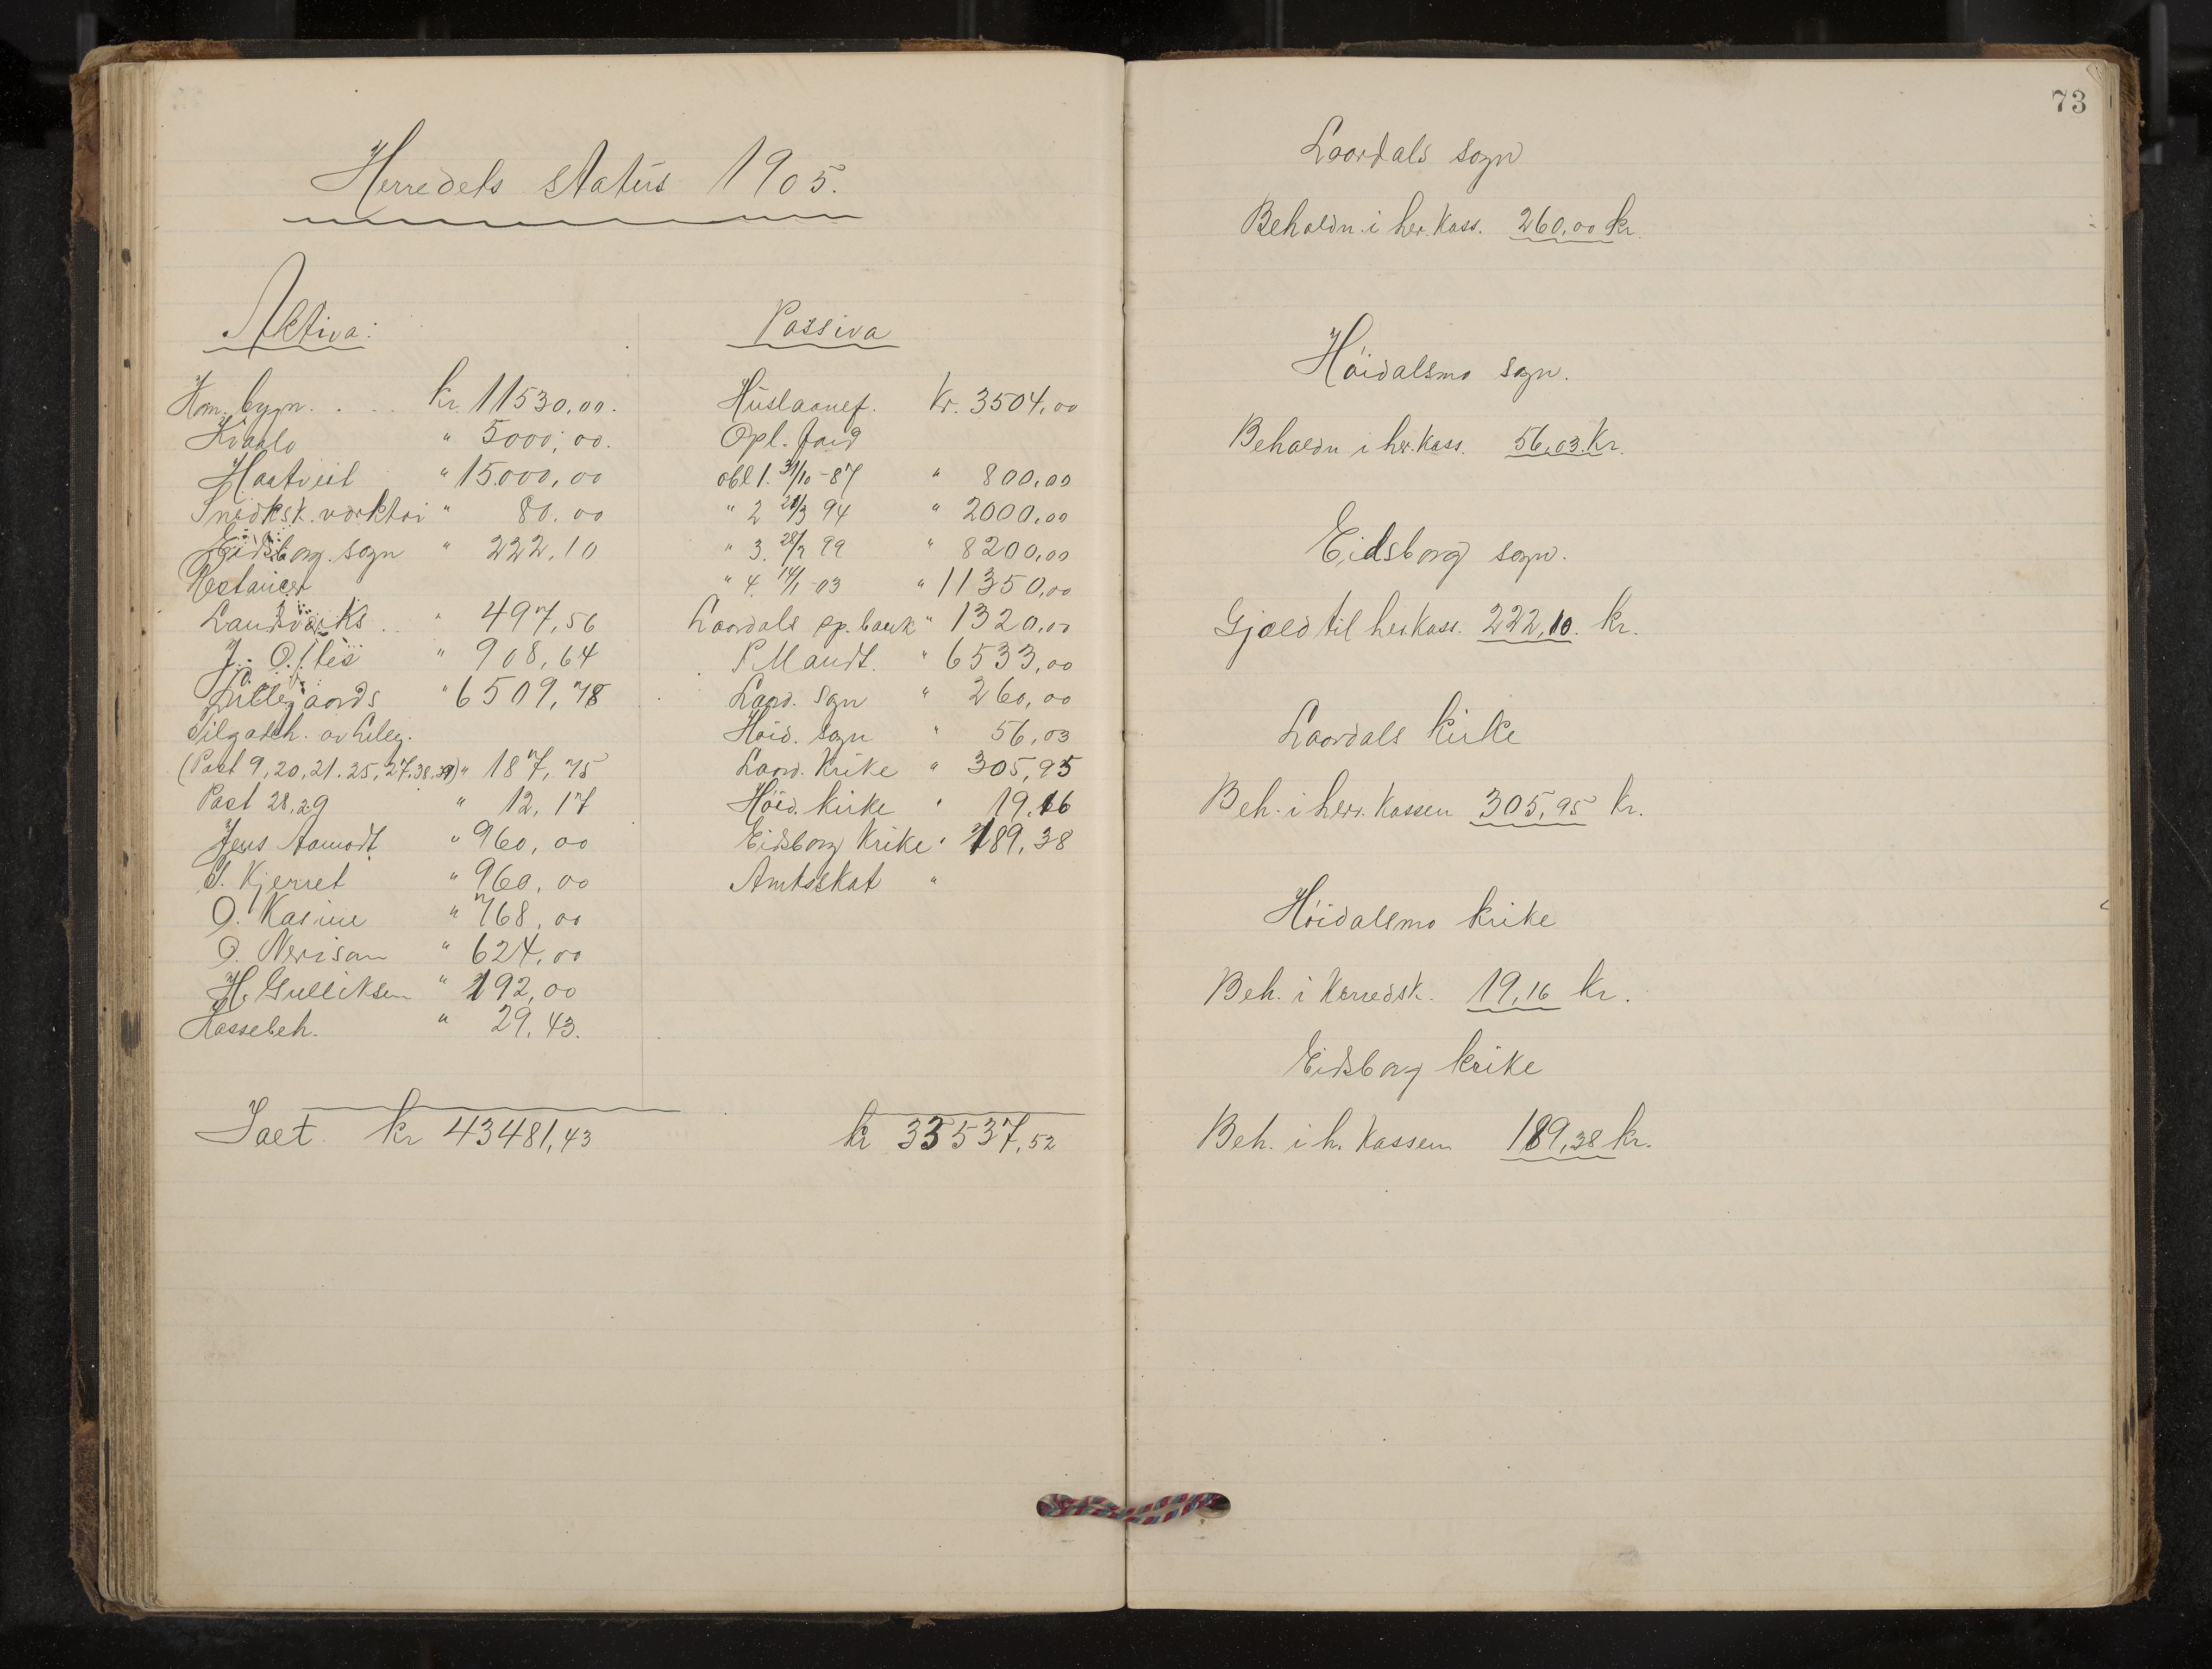 Herredets status 1905.
Aktiva:
Kom. bygn. . . . kr. 11530,00.
Kvaalo " 5000,00.
Haatveit " 15.000,00
Snedksk. værktøi " 80.00
Eidsborg. sogn " 222,10
Restancer
Landviks . . " 497,56
J. O. " 908,64
Lillegaards " 6509,78
Tilgodeh. av Lilleg.
(Post 9, 20, 21. 25, 27. 38, 39) " 187,75
Post 28, 29 " 12,17
Jens Aamodt " 960,00
S. Kjerret " 960,00
O. Kasine " 768,00
O. Nerisan " 624,00
H. Gulliksen " 192,00
Kassebeh. " 29,43.
Saet. kr 43481,43
Passiva
Huslaanef. kr. 3504,00
Opl. fond
obl 1. 31/10 - 87 " 800,00
" 2 21/3 94 " 2000,00
" 3. 28/2 99 " 8200,00
" 4. 14/1 - 03 " 11350,00
Laardals sp. bank " 1320,00
P Mandt. " 6533,00
Laard. sogn " 260,00
Høid. sogn " 56,03
Laard. kirke " 305,95
Høid. kirke " 19,16
Eidsborg kirke " 189,38
Amtsskat "
kr 33537,52
73
Laardals sogn
Beholdn. i her. kass. 260,00 kr.
Høidalsmo sogn.
Beholdn i her. kass. 56,03. kr.
Eidsborg sogn.
Gjæld til her. kass. 222,10. kr.
Laardals kirke
Beh. i herr. kassen 305,95 kr.
Høidalsmo kirke
Beh. i herredsk. 19,16 kr.
Eidsborg kirke
Beh. i h. kassen 189,38 kr.